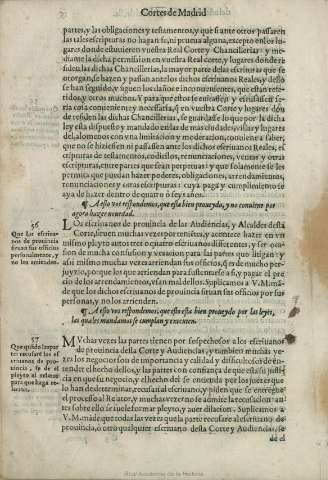 Cortes de Madrid
partes, y las obligaciones y testamentos, y que si ante otros passaren
las tales escripturas no hagan fe, ni prueua alguna, excepto en los lu-
gares donde estuuieren vuestra Real Corte y Chancillerias: y me-
diante la dicha permission en vuestra Real corte, y lugares donde re-
siden las dichas Chancillerias, la mayor parte de las escrituras que se
otorgan, se hazen y passan ante los dichos escriuanos Reales, y dello
se han seguido, y siguen los daños e inconuenientes, que estan refe-
ridos, y otros muchos. Y para que estos se euitassen y escusassen se-
ria cosa conueniente y necessaria, que en vuestra Corte y lugares dõ-
de residen las dichas Chancillerias, se guardasse lo que por la dicha
ley esta dispuesto y mandado en las de mas ciudades, villas y lugares
del, a lo menos con vna limitacion y moderacion, conuiene a saber,
que no se hiziessen ni passassen ante los dichos escriuanos Reales, es
cripturas de testamentos, codicilos, renunciaciones, ventas y otras
escripturas, entre partes que sean perpetuas: y que solamente se les
permita que puedan hazer poderes, obligaciones, arrendamientos,
renunciaciones y otras escripturas: cuya paga y cumplimiento se
aya de hazer dentro de quatro o seys años.
¶ A esto vos respondemos, que esta bien proueydo, y no conuiene por
agora hazer nouedad.
56
Que los escriua-
nos de prouincia
siruan sus officios
personalmente, y
no los arrienden.
LOs escriuanos de prouincia de las Audiencias, y Alcaldes desta
Corte, siruen muchas vezes por sostitutos, y acontece hazer en vn
mismo pleyto autos tres o quatro escriuanos differentes, y ser oca-
sion de mucha confusion y vexacion para las partes que litigan: y
assi mismo muchas vezes arriendan sus officios, q̃ es de mucho per-
juyzio, porque los que arriendan para sustentarse a si, y pagar el pre
cio de los arrendamientos, vsan mal dellos. Suplicamos a V. M. mã
de que los dichos escriuanos de prouincia siruan sus officios por sus
personas, y no los arrienden.
¶ A esto vos respondemos, que esto esta bien proueydo por las leyes,
las quales mandamos se cumplan y executen.
57
MVchas vezes las partes tienen por sospechosos a los escriuanos
de prouincia desta Corte y Audiencias, y tambien muchas ve-
zes los negocios son de importancia y calidad y dificultosos de en-
tender el hecho dellos, y las partes con confiança de que esta su justi-
cia en que su negocio, y el hecho del se entienda por los juezes que
lo han de determinar, recusan al escriuano, y piden que se entregue
el processo al Relator, y muchas vezes no se admite la recusacion: an
tes sobre ello se suele formar pleyto, y auer dilacion. Suplicamos a
V. M. mãde, que todas las vezes que la parte recusare al escriuano de
prouincia, o otro qualquier escriuano desta Corte y Audiencias, se
de el
Real Academia de la Historia